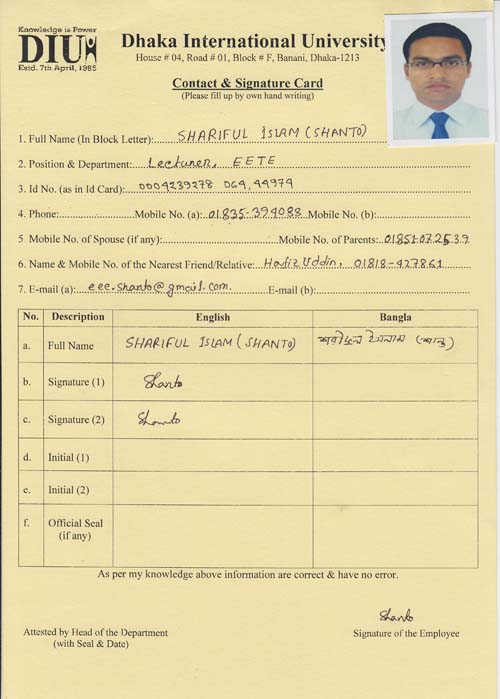 Knowledge is Power
DIU
Estd. 7th April, 1995
Dhaka International University
House # 04, Road # 01, Block # F, Banani, Dhaka-1213
Contact & Signature Card
(Please fill up by own hand writing)
1. Full Name (In Block Letter): SHARIFUL ISLAM (SHANTO)
2. Position & Department: Lecturer, EETE
3. Id No. (as in Id Card): 0004239278 064,44979
4. Phone: Mobile No. (a): 01835-394088 Mobile No. (b):
5 Mobile No. of Spouse (if any): Mobile No. of Parents: 01851072539
6. Name & Mobile No. of the Nearest Friend/Relative: Hafiz Uddin, 01818-427861
7. E-mail (a): eee.shanto@gmail.com. E-mail (b):
No. Description English Bangla
a. Full Name SHARIFUL ISLAM (SHANTO) শরীফুল ইসলাম (শান্ত)
b. Signature (1) Shanto
c. Signature (2) Shanto
d. Initial (1)
e. Initial (2)
f. Official Seal
(if any)
As per my knowledge above information are correct & have no error.
Shanto
Attested by Head of the Department Signature of the Employee
(with Seal & Date)